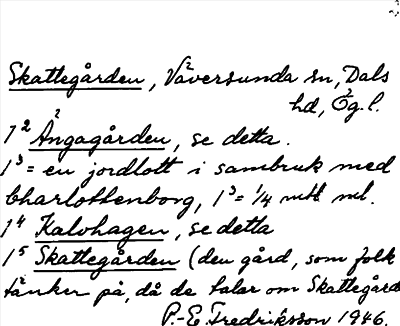 Skattegården, Väversunda sn, Dals
hd, Ög. l.
1² Ängagården, se detta.
1³ = en jordlott i sambruk med
Charlottenborg, 1³ = 1/4 mtl.
1⁴ Kalvhagen, se detta
1⁵ Skattegården (den gård, som folk
tänker på, då de talar om Skattegård
P.-E. Fredriksson 1946.